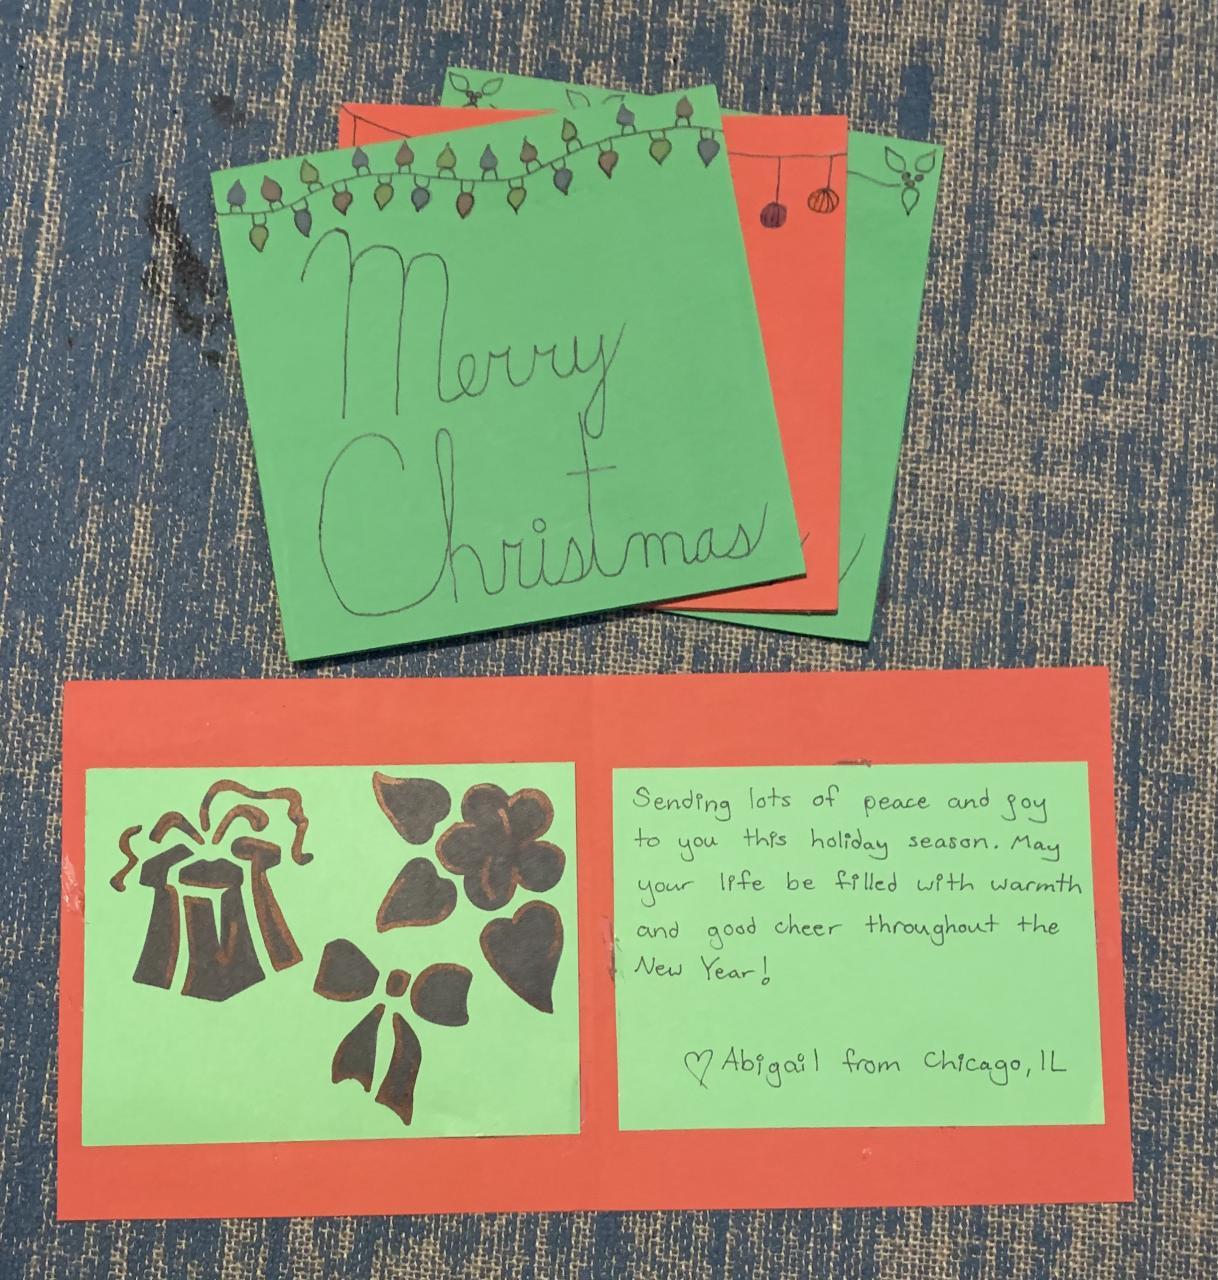 Merry
Christmas
Sending lots of peace and joy
to you this holiday season. May
your life be filled with warmth
and good cheer throughout the
New Year!
♡ Abigail from Chicago, IL